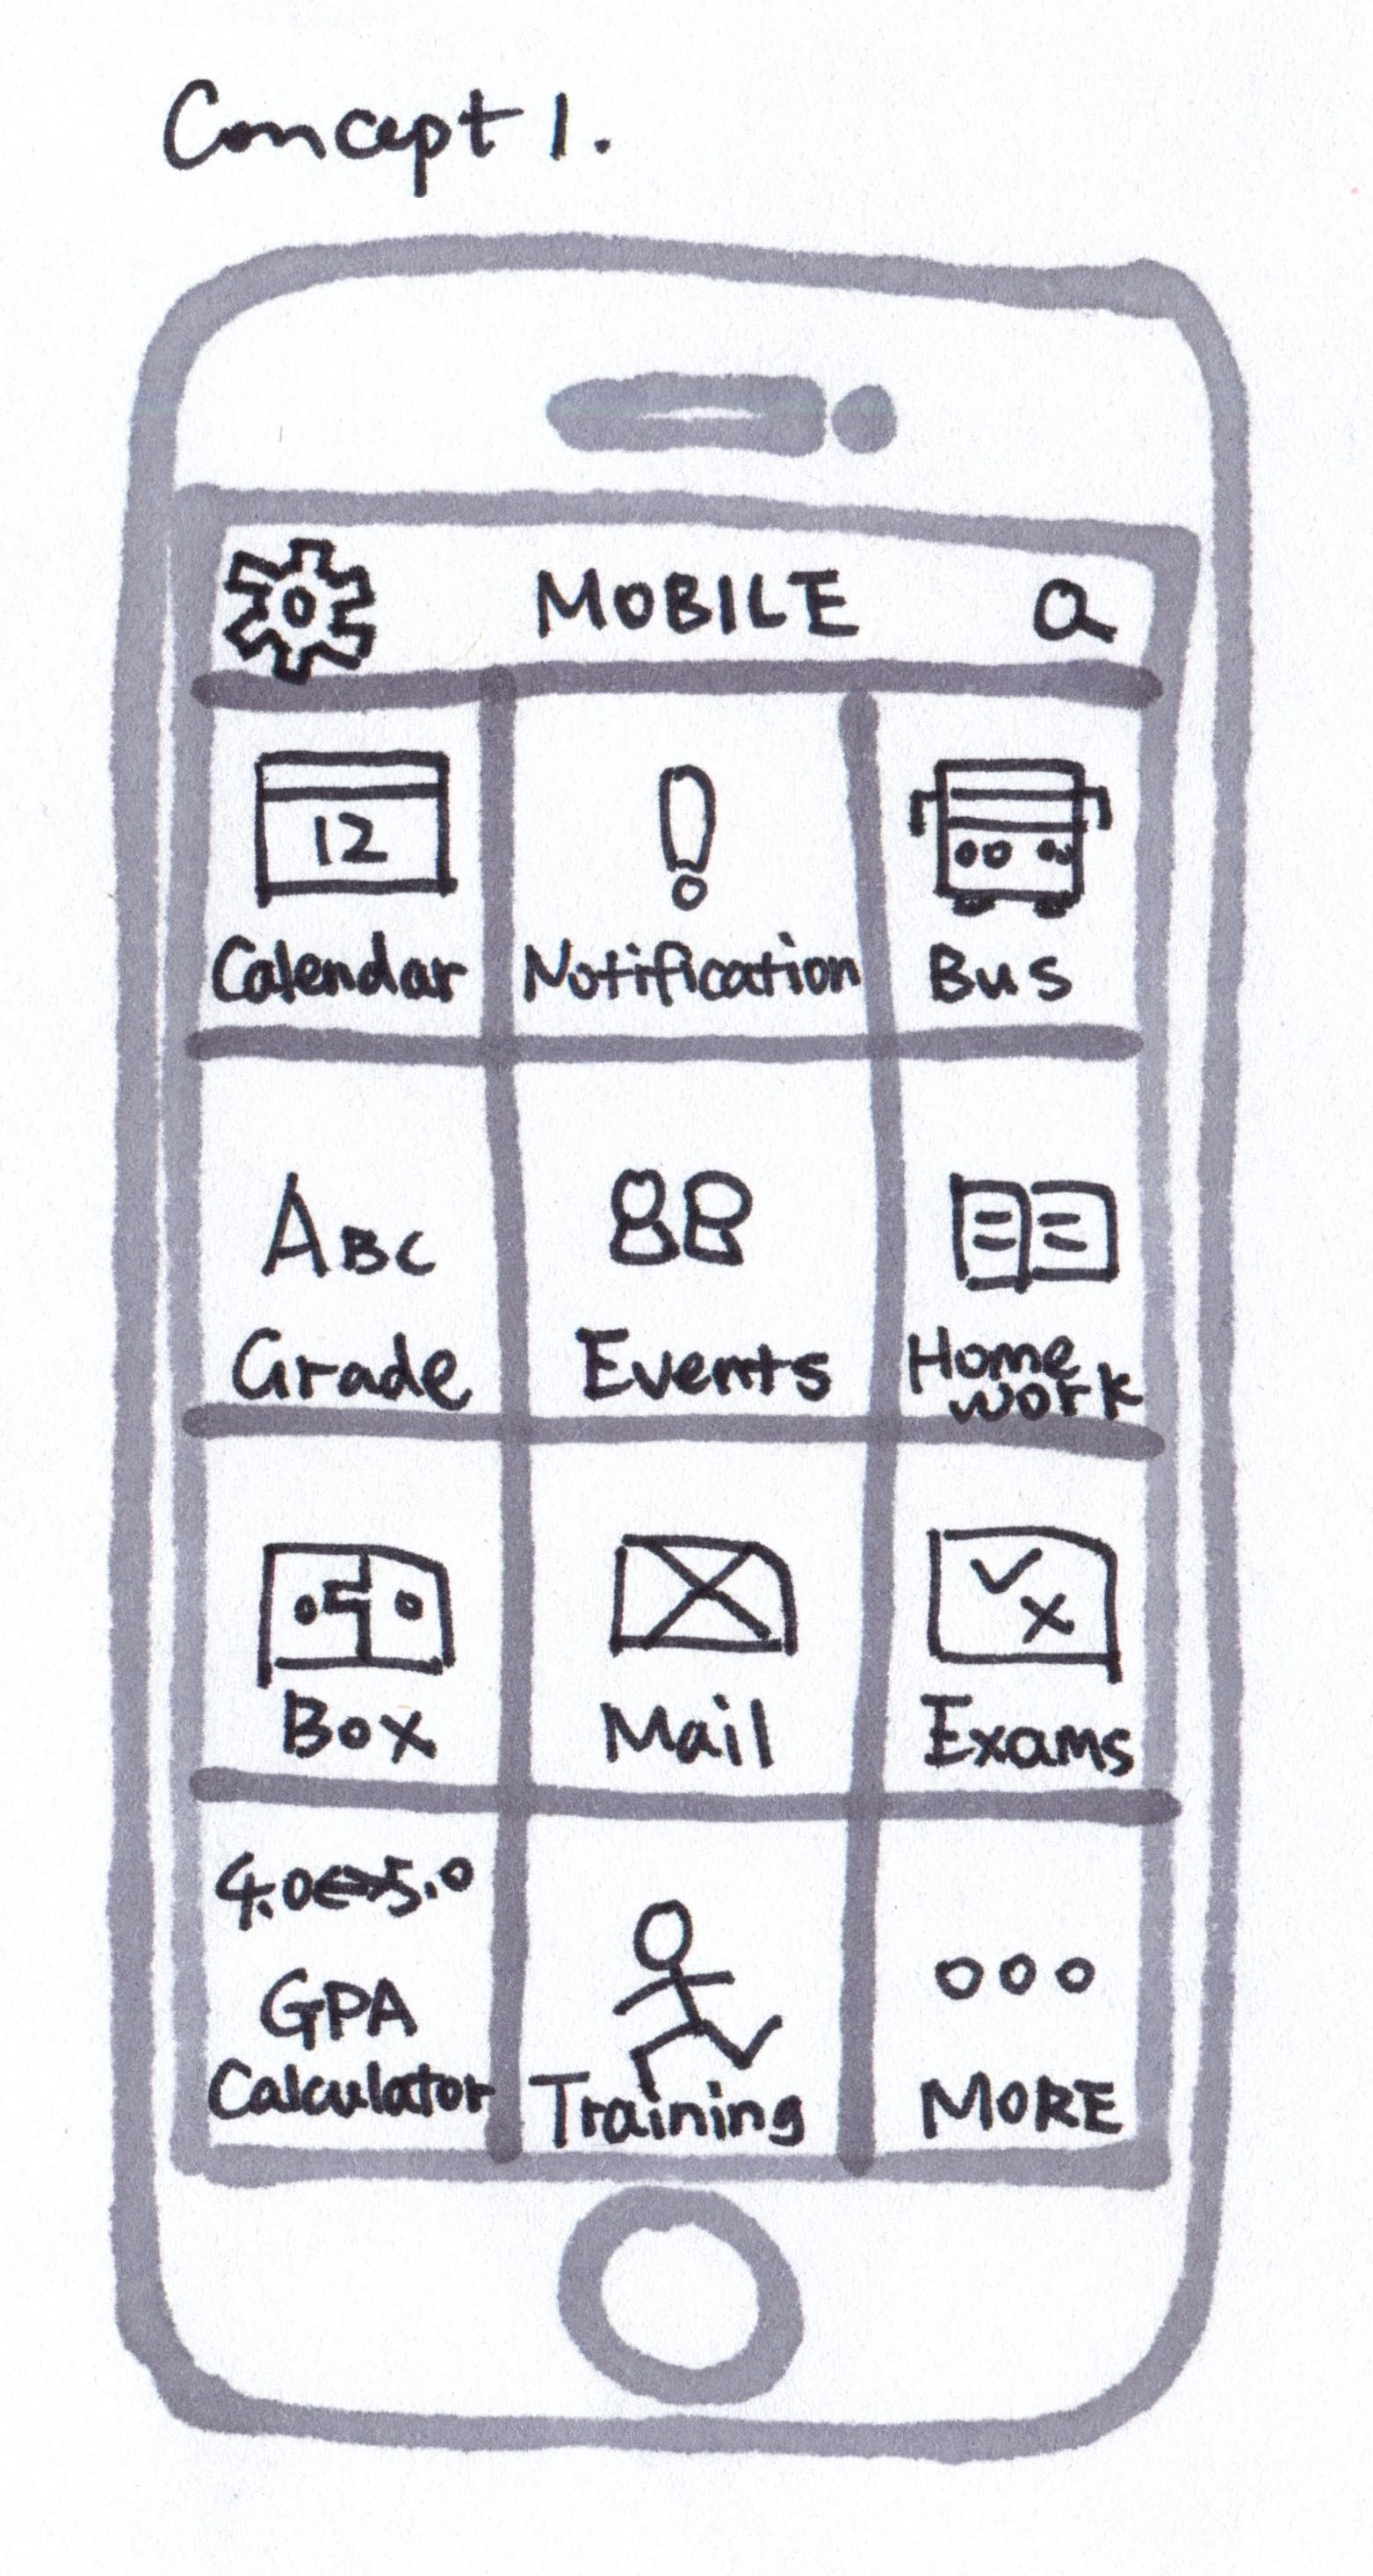 Concept 1.
MOBILE
12
Calendar
Notification
Bus
ABC
Grade
Events
Home
work
Box
Mail
Exams
4.0⇔5.0
GPA
Calculator
Training
MORE